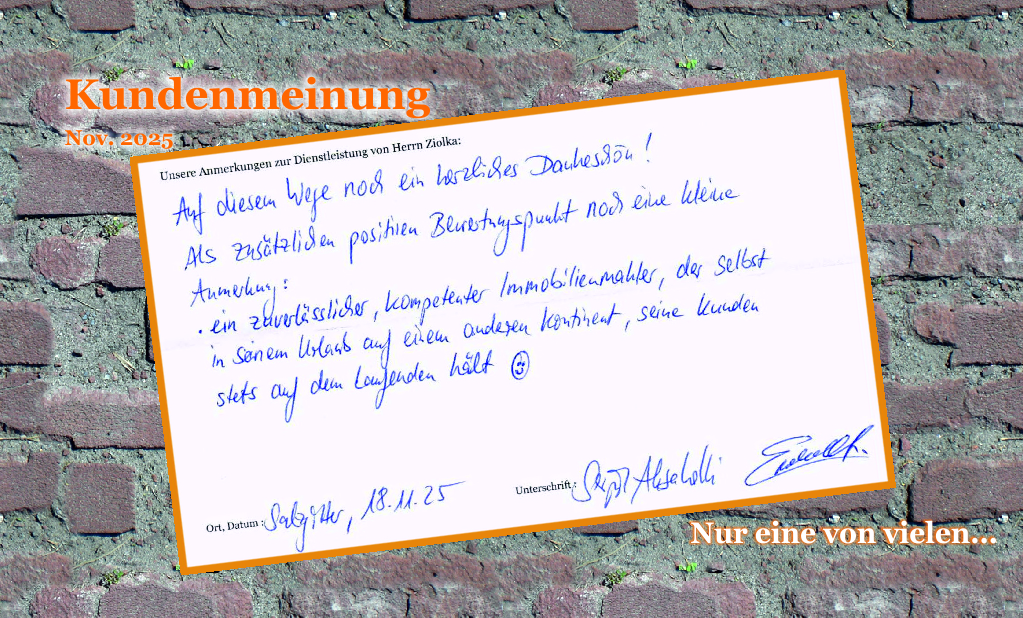 Kundenmeinung
Nov. 2025
Unsere Anmerkungen zur Dienstleistung von Herrn Ziolka:
Auf diesem Wege noch ein herzliches Dankeschön!
Als zusätzlichen positiven Bewertungspunkt noch eine kleine
Anmerkung:
· ein zuverlässlicher, kompetenter Immobilienmakler, der selbst
in seinem Urlaub auf einem anderen Kontinent, seine Kunden
stets auf dem Laufenden hält ☺
Ort, Datum: Salzgitter, 18.11.25
Unterschrift:
Nur eine von vielen...